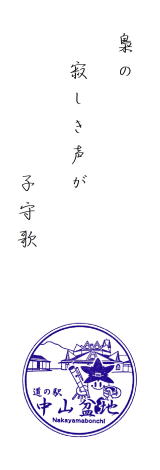 梟の
寂しき声が
子守歌
道の駅
中山盆地
Nakayamabonchi